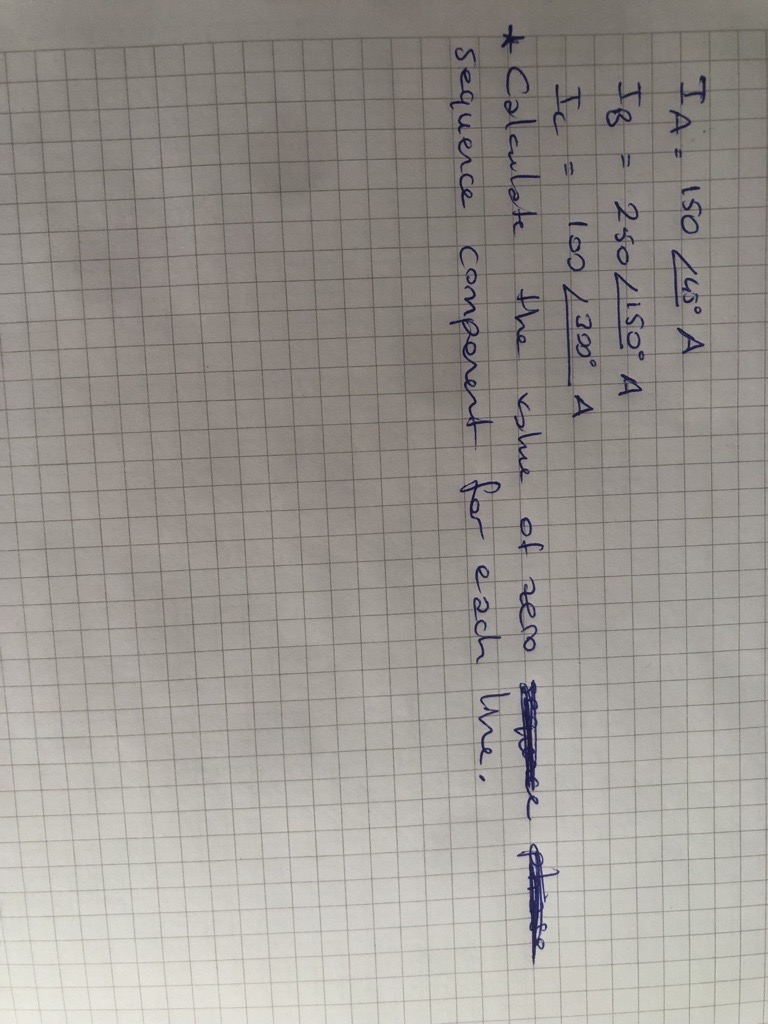 IA = 150 ∠45° A
IB = 250 ∠150° A
IC = 100 ∠300° A
* Calculate the value of zero
sequence component for each line.